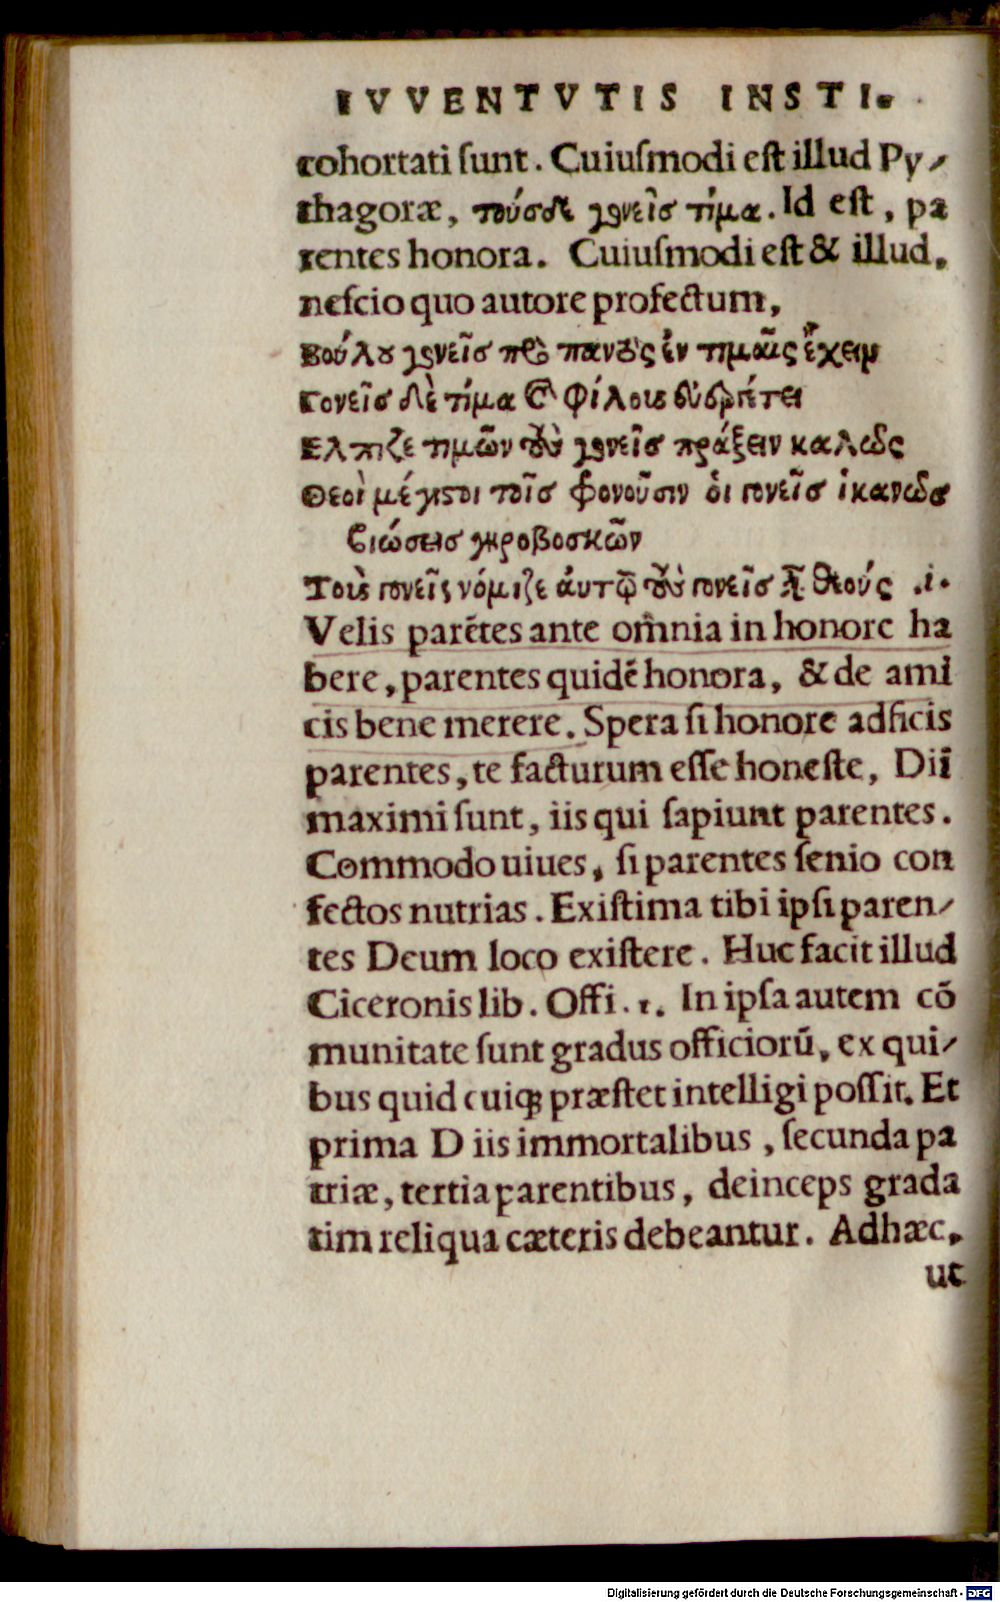 IVVENTVTIS INSTI.
cohortati ſunt. Cuiuſmodi eſt illud Py⸗
thagoræ, τούσδε γονεῖσ τίμα. Id eſt, pa
rentes honora. Cuiuſmodi eſt & illud,
neſcio quo autore profectum,
Βούλου γονεῖσ πρὸ παντὸς ἐν τιμαῖς ἔχειν
Γονεῖσ δὲ τίμα καὶ φίλους
Ελπιζε τιμῶν τοὺς γονεῖσ πράξειν καλῶς
Θεοὶ μέγιστοι τοῖσ φρονοῦσιν οἱ γονεῖσ
Βιώσεισ ἱκανῶσ γηροβοσκῶν
Τοὺς γονεῖς νόμιζε ἀυτῷ τοὺς γονεῖσ θεούς .i.
Velis parẽtes ante om̃nia in honore ha
bere, parentes quidẽ honora, & de ami
cis bene merere. Spera ſi honore adficis
parentes, te facturum eſſe honeſte, Dii
maximi ſunt, iis qui ſapiunt parentes.
Commodo uiues, ſi parentes ſenio con
fectos nutrias. Exiſtima tibi ipſi paren⸗
tes Deum loco exiſtere. Huc facit illud
Ciceronis lib. Offi. 1. In ipſa autem cõ
munitate ſunt gradus officiorũ, ex qui⸗
bus quid cuiqꝫ præſtet intelligi poſſit. Et
prima D iis immortalibus, ſecunda pa
triæ, tertia parentibus, deinceps grada
tim reliqua cæteris debeantur. Adhæc,
ut
Digitalisierung gefördert durch die Deutsche Forschungsgemeinschaft - DFG